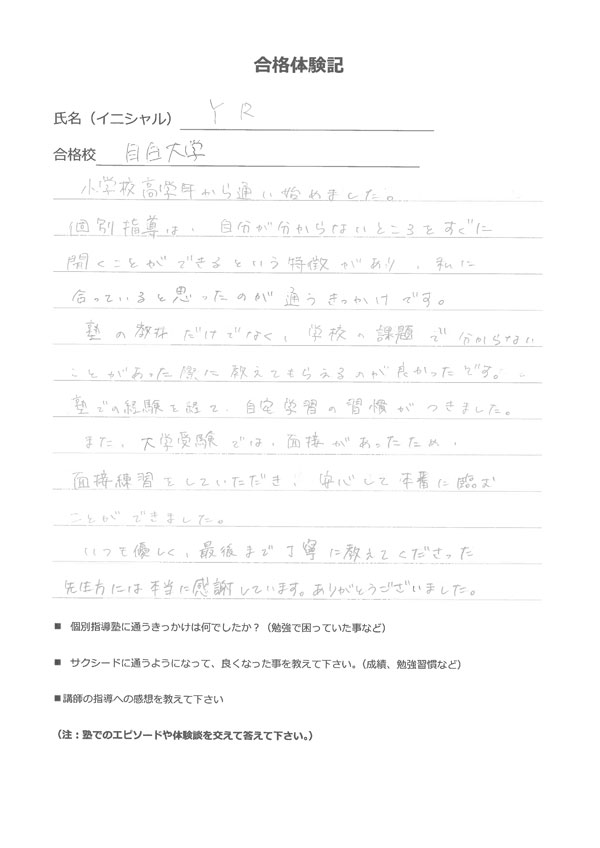 合格体験記
氏名（イニシャル） Y R
合格校 目白大学
小学校高学年から通い始めました。
個別指導は、自分が分からないところをすぐに
聞くことができるという特徴があり、私に
合っていると思ったのが通うきっかけです。
塾の教科だけでなく、学校の課題で分からない
ことがあった際に教えてもらえるのが良かったです。
塾での経験を経て、自宅学習の習慣がつきました。
また、大学受験では、面接があったため、
面接練習をしていただき、安心して本番に臨む
ことができました。
いつも優しく、最後まで丁寧に教えてくださった
先生方には本当に感謝しています。ありがとうございました。
■ 個別指導塾に通うきっかけは何でしたか？（勉強で困っていた事など）
■ サクシードに通うようになって、良くなった事を教えて下さい。（成績、勉強習慣など）
■講師の指導への感想を教えて下さい
（注：塾でのエピソードや体験談を交えて答えて下さい。）